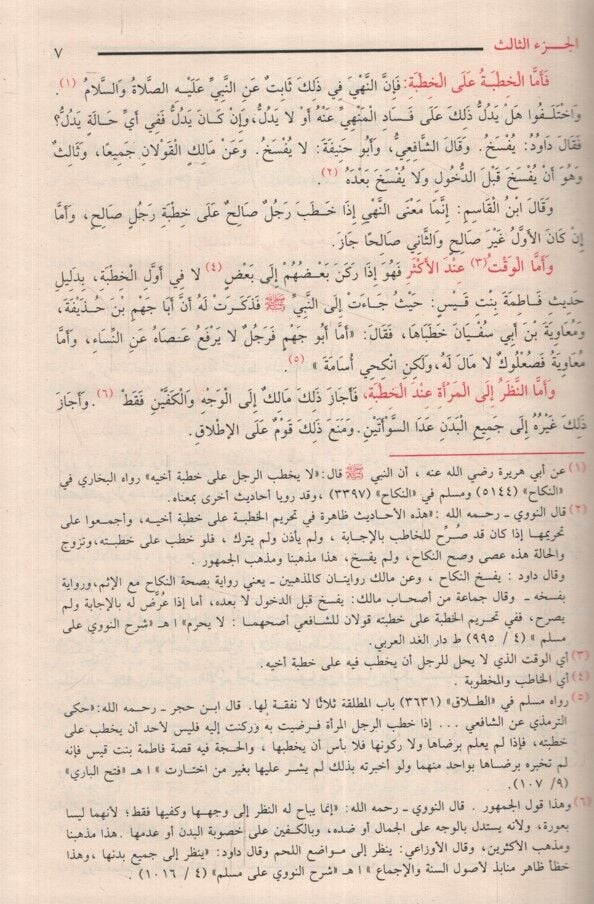 الجزء الثالث ٧
فَأَمَّا الْخِطْبَةُ عَلَى الْخِطْبَةِ: فَإِنَّ النَّهْيَ فِي ذَلِكَ ثَابِتٌ عَنِ النَّبِيِّ عَلَيْهِ الصَّلَاةُ وَالسَّلَامُ (١).
وَاخْتَلَفُوا هَلْ يَدُلُّ ذَلِكَ عَلَى فَسَادِ الْمَنْهِيِّ عَنْهُ أَوْ لَا يَدُلُّ، وَإِنْ كَانَ يَدُلُّ فَفِي أَيِّ حَالَةٍ يَدُلُّ؟
فَقَالَ دَاوُدُ: يُفْسَخُ. وَقَالَ الشَّافِعِيُّ، وَأَبُو حَنِيفَةَ: لَا يُفْسَخُ. وَعَنْ مَالِكٍ الْقَوْلَانِ جَمِيعًا، وَثَالِثٌ
وَهُوَ أَنْ يُفْسَخَ قَبْلَ الدُّخُولِ وَلَا يُفْسَخَ بَعْدَهُ (٢).
وَقَالَ ابْنُ الْقَاسِمِ: إِنَّمَا مَعْنَى النَّهْيِ إِذَا خَطَبَ رَجُلٌ صَالِحٌ عَلَى خِطْبَةِ رَجُلٍ صَالِحٍ، وَأَمَّا
إِنْ كَانَ الْأَوَّلُ غَيْرَ صَالِحٍ وَالثَّانِي صَالِحًا جَازَ.
وَأَمَّا الْوَقْتُ (٣) عِنْدَ الْأَكْثَرِ فَهُوَ إِذَا رَكَنَ بَعْضُهُمْ إِلَى بَعْضٍ (٤) لَا فِي أَوَّلِ الْخِطْبَةِ، بِدَلِيلِ
حَدِيثِ فَاطِمَةَ بِنْتِ قَيْسٍ: حَيْثُ جَاءَتْ إِلَى النَّبِيِّ ﷺ فَذَكَرَتْ لَهُ أَنَّ أَبَا جَهْمِ بْنَ حُذَيْفَةَ،
وَمُعَاوِيَةَ بْنَ أَبِي سُفْيَانَ خَطَبَاهَا، فَقَالَ: «أَمَّا أَبُو جَهْمٍ فَرَجُلٌ لَا يَرْفَعُ عَصَاهُ عَنِ النِّسَاءِ، وَأَمَّا
مُعَاوِيَةُ فَصُعْلُوكٌ لَا مَالَ لَهُ، وَلَكِنِ انْكِحِي أُسَامَةَ» (٥).
وَأَمَّا النَّظَرُ إِلَى الْمَرْأَةِ عِنْدَ الْخِطْبَةِ، فَأَجَازَ ذَلِكَ مَالِكٌ إِلَى الْوَجْهِ وَالْكَفَّيْنِ فَقَطْ (٦). وَأَجَازَ
ذَلِكَ غَيْرُهُ إِلَى جَمِيعِ الْبَدَنِ عَدَا السَّوْأَتَيْنِ. وَمَنَعَ ذَلِكَ قَوْمٌ عَلَى الْإِطْلَاقِ.
(١) عن أبي هريرة رضي الله عنه ، أن النبي ﷺ قال: «لا يخطب الرجل على خطبة أخيه» رواه البخاري في
«النكاح» (٥١٤٤) ومسلم في «النكاح» (٣٣٩٧) ، وقد رويا أحاديث أخرى بمعناه.
(٢) قال النووي ـ رحمه الله : «هذه الأحاديث ظاهرة في تحريم الخطبة على خطبة أخيه، وأجمعوا على
تحريمها إذا كان قد صُرِّح للخاطب بالإجابة ، ولم يأذن ولم يترك ، فلو خطب على خطبته، وتزوج
والحالة هذه عصى وصح النكاح، ولم يفسخ، هذا مذهبنا ومذهب الجمهور .
وقال داود : يفسخ النكاح ، وعن مالك روايتان كالمذهبين ـ يعني رواية بصحة النكاح مع الإثم، ورواية
بفسخه ـ وقال جماعة من أصحاب مالك: يفسخ قبل الدخول لا بعده، أما إذا عُرِّض له بالإجابة ولم
يصرح، ففي تحريم الخطبة على خطبته قولان للشافعي أصحهما : لا يحرم» ا هـ «شرح النووي على
مسلم » (٤ / ٩٩٥) ط دار الغد العربي.
(٣) أي الوقت الذي لا يحل للرجل أن يخطب فيه على خطبة أخيه.
(٤) أي الخاطب والمخطوبة .
(٥) رواه مسلم في «الطلاق» (٣٦٣١) باب المطلقة ثلاثًا لا نفقة لها. قال ابن حجر ـ رحمه الله: «حكى
الترمذي عن الشافعي ... إذا خطب الرجل المرأة فرضيت به وركنت إليه فليس لأحد أن يخطب على
خطبته، فإذا لم يعلم برضاها ولا ركونها فلا بأس أن يخطبها ، والحجة فيه قصة فاطمة بنت قيس فإنه
لم تخبره برضاها بواحد منهما ولو أخبرته بذلك لم يشر عليها بغير من اختارت » ا هـ «فتح الباري»
(٩/ ١٠٧).
(٦) وهذا قول الجمهور . قال النووي ـ رحمه الله: «إنما يباح له النظر إلى وجهها وكفيها فقط؛ لأنهما ليسا
بعورة، ولأنه يستدل بالوجه على الجمال أو ضده، وبالكفين على خصوبة البدن أو عدمها .هذا مذهبنا
ومذهب الأكثرين، وقال الأوزاعي: ينظر إلى مواضع اللحم وقال داود: «ينظر إلى جميع بدنها ،وهذا
خطأ ظاهر منابذ لأصول السنة والإجماع » ا هـ «شرح النووي على مسلم» (٤ / ١٠١٦)